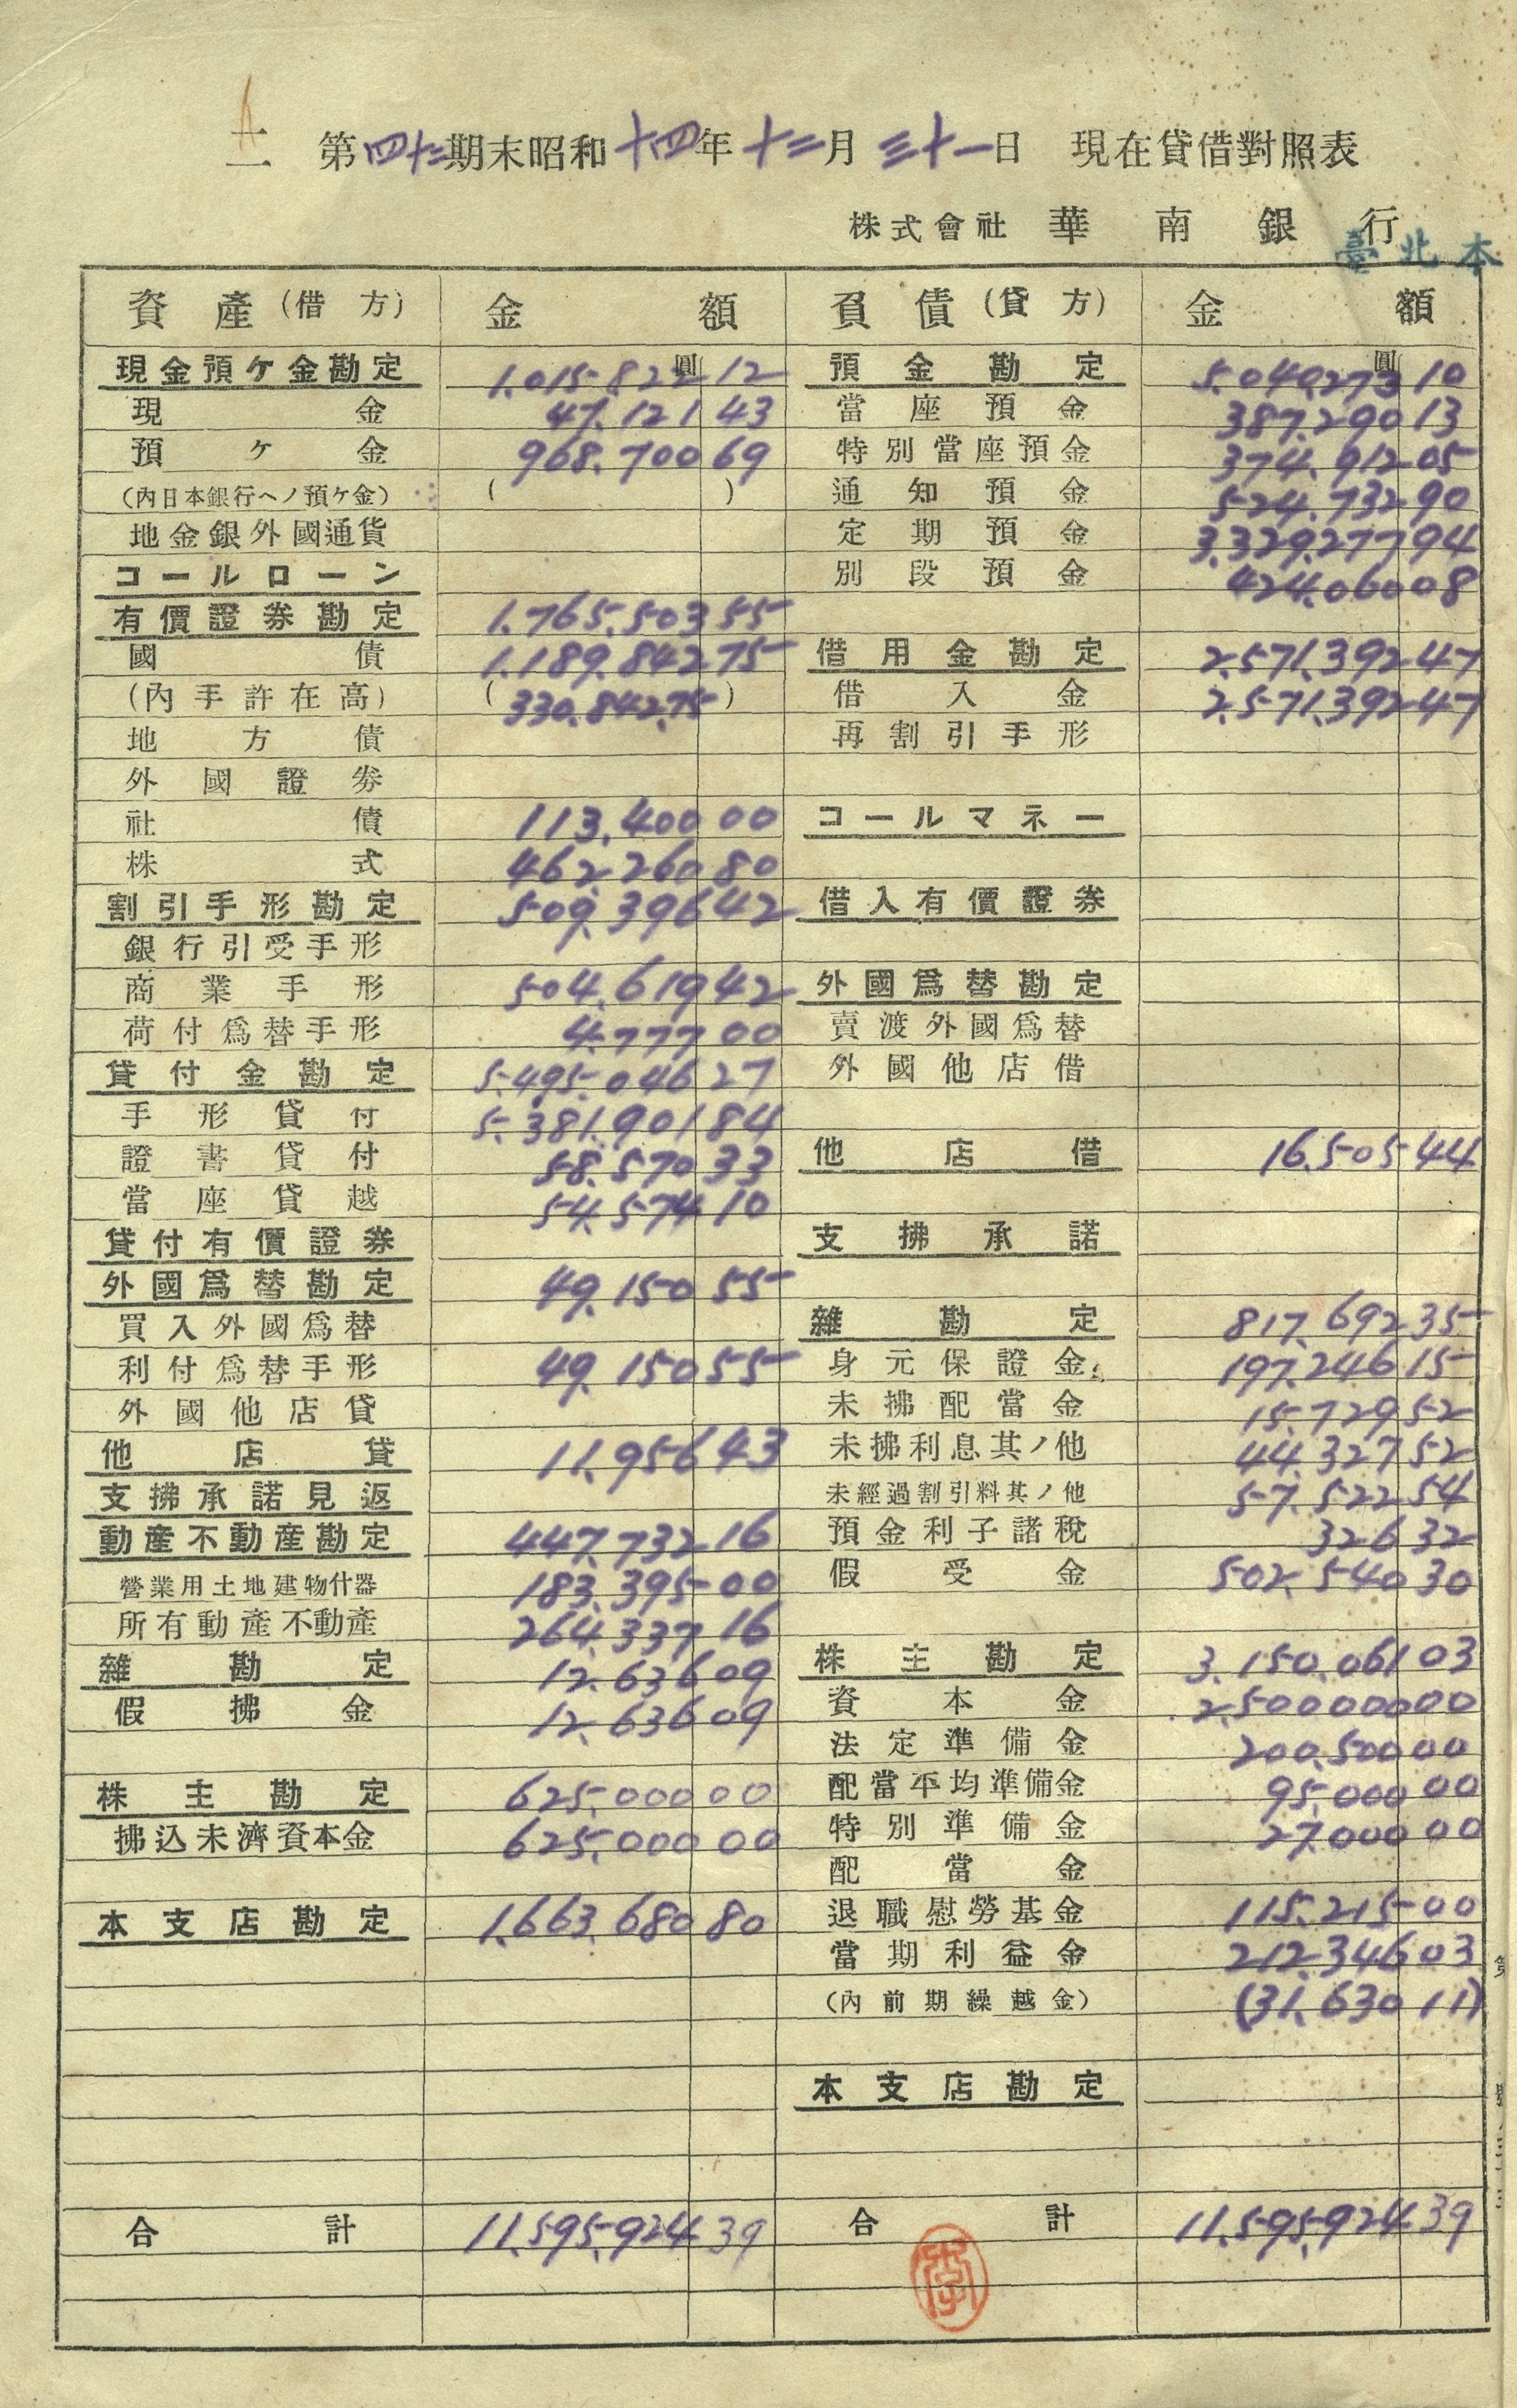 二 第四十二期末昭和十四年十二月三十一日 現在貸借對照表
株式會社 華南銀行
臺北本
資產(借方) 金額 負債(貸方) 金額
現金預ケ金勘定 1.015.822 圓 12 預金勘定 5.040.273 圓 10
現金 47.121 43 當座預金 387.290 13
預ケ金 968.700 69 特別當座預金 374.912 05
(內日本銀行ヘノ預ケ金) ( ) 通知預金 524.732 90
地金銀外國通貨 定期預金 3.329.277 94
コールローン 別段預金 424.060 08
有價證券勘定 1.765.503 55
國債 1.189.842 75 借用金勘定 2.571.392 47
(內手許在高) (330.842.75) 借入金 2.571.392 47
地方債 再割引手形
外國證券
社債 113.400 00 コールマネー
株式 462.260 80
割引手形勘定 509.396 42 借入有價證券
銀行引受手形
商業手形 504.619 42 外國爲替勘定
荷付爲替手形 4.777 00 賣渡外國爲替
貸付金勘定 5.495.046 27 外國他店借
手形貸付 5.381.901 84
證書貸付 58.570 33 他店借 16.505 44
當座貸越 54.574 10
貸付有價證券 支拂承諾
外國爲替勘定 49.150 55
買入外國爲替 雜勘定 817.692 35
利付爲替手形 49.150 55 身元保證金 197.246 15
外國他店貸 未拂配當金 15.729 52
他店貸 11.956 43 未拂利息其ノ他 44.327 52
支拂承諾見返 未經過割引料其ノ他 57.522 54
動產不動產勘定 447.732 16 預金利子諸稅 326 32
營業用土地建物什器 183.395 00 假受金 502.540 30
所有動產不動產 264.337 16
雜勘定 12.636 09 株主勘定 3.150.061 03
假拂金 12.636 09 資本金 2.500000 00
法定準備金 200.500 00
株主勘定 625.000 00 配當平均準備金 95.000 00
拂込未濟資本金 625.000 00 特別準備金 27.000 00
配當金
本支店勘定 1.663.680 80 退職慰勞基金 115.215 00
當期利益金 212.346 03
(內前期繰越金) (31.630 11)
本支店勘定
合計 11.595.924 39 合計 11.595.924 39